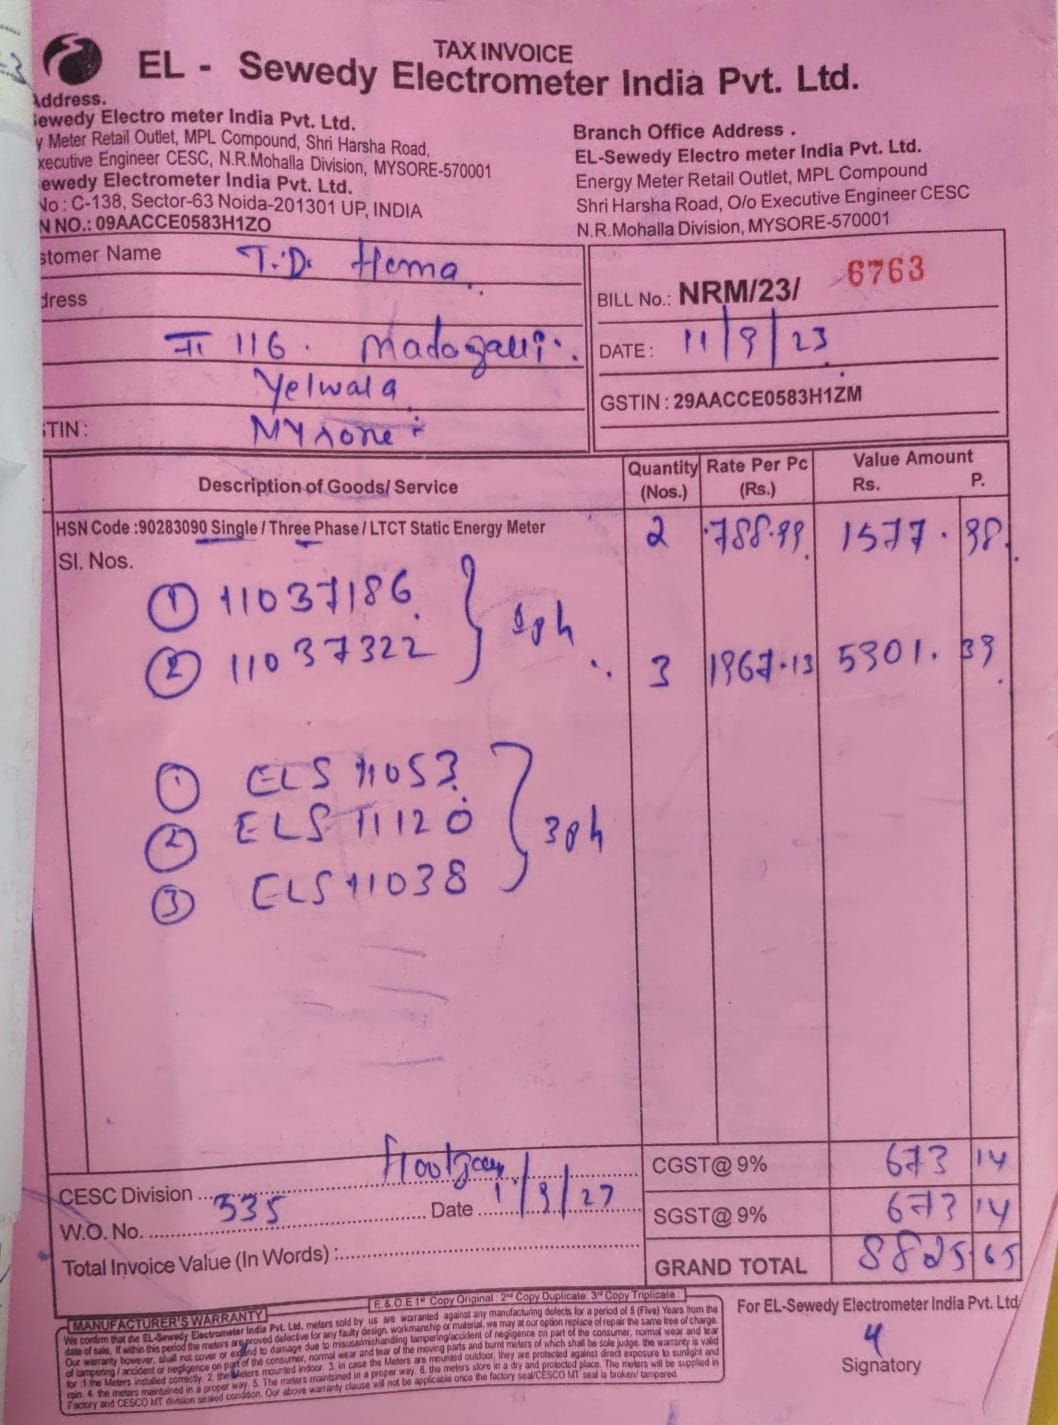 TAX INVOICE
EL - Sewedy Electrometer India Pvt. Ltd.
Address.
Sewedy Electro meter India Pvt. Ltd.
y Meter Retail Outlet, MPL Compound, Shri Harsha Road,
xecutive Engineer CESC, N.R.Mohalla Division, MYSORE-570001
ewedy Electrometer India Pvt. Ltd.
No : C-138, Sector-63 Noida-201301 UP, INDIA
N NO.: 09AACCE0583H1ZO
Branch Office Address .
EL-Sewedy Electro meter India Pvt. Ltd.
Energy Meter Retail Outlet, MPL Compound
Shri Harsha Road, O/o Executive Engineer CESC
N.R.Mohalla Division, MYSORE-570001
stomer Name T.D. Hema
dress
116. Madagalli
Yelwala
STIN : Mysore
BILL No.: NRM/23/ 6763
DATE : 11/9/23
GSTIN : 29AACCE0583H1ZM
Description of Goods/ Service Quantity (Nos.) Rate Per Pc (Rs.) Value Amount Rs. P.
HSN Code :90283090 Single / Three Phase / LTCT Static Energy Meter 2 788.99 1577.98
Sl. Nos.
① 11037186
② 11037322 } 1ph
3 1967.13 5901.39
① ELS 11053
② ELS 11120 } 3ph
③ ELS 11038
CESC Division
W.O. No. 335 Date
Total Invoice Value (In Words) :
CGST@ 9% 673 14
SGST@ 9% 673 14
GRAND TOTAL 8825 65
E & O.E 1st Copy Original : 2nd Copy Duplicate. 3rd Copy Triplicate :
MANUFACTURER'S WARRANTY
We confirm that the EL-Sewedy Electrometer India Pvt. Ltd. meters sold by us are warranted against any manufacturing defects for a period of 5 (Five) Years from the
date of sale. If within this period the meters are proved defective for any faulty design, workmanship or material, we may at our option replace of repair the same free of charge.
Our warranty however, shall not cover or extend to damage due to misuse/mishandling tampering/accident of negligence on part of the consumer, normal wear and tear
of tampering / accident or negligence on part of the consumer, normal wear and tear of the moving parts and burnt meters of which shall be sole judge. the warranty is valid
for :1.the Meters installed correctly. 2. the Meters mounted indoor. 3. in case the Meters are mounted outdoor, they are protected against direct exposure to sunlight and
rain. 4. the meters maintained in a proper way. 5. The meters maintained in a proper way. 6. the meters store in a dry and protected place. The meters will be supplied in
Factory and CESCO MT division sealed condition. Our above warranty clause will not be applicable once the factory seal/CESCO MT seal is broken/ tampered.
For EL-Sewedy Electrometer India Pvt. Ltd
Signatory